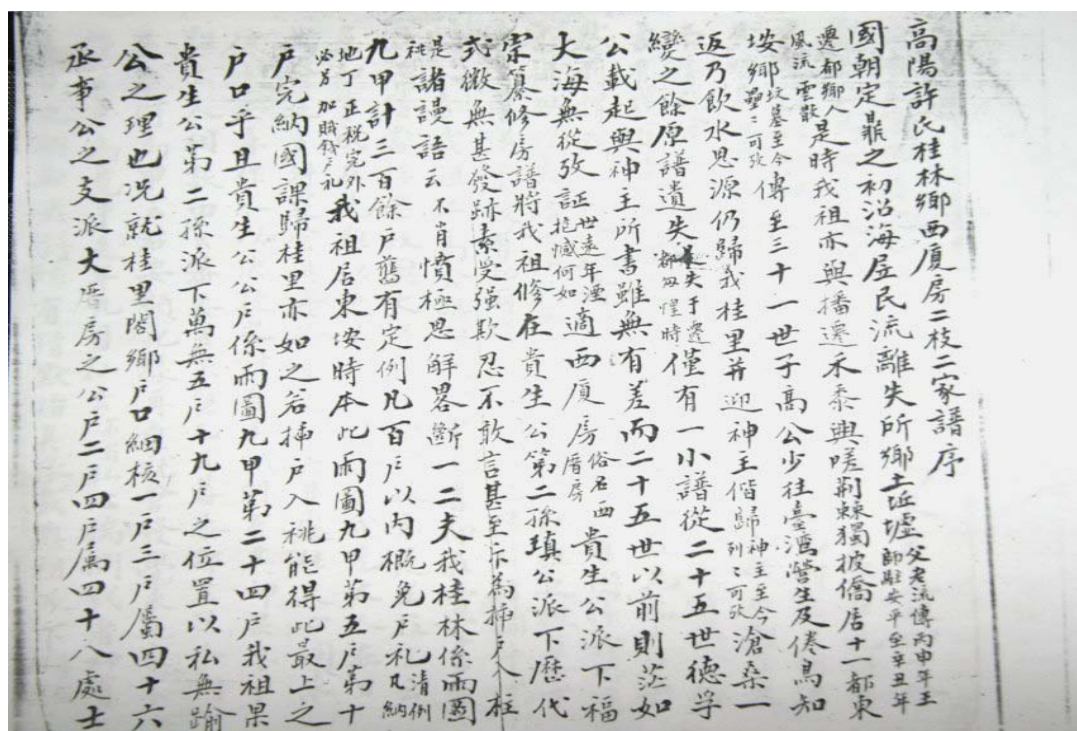 高陽許氏桂林鄉西廈房二枝二家譜序
國朝定鼎之初沿海居民流離失所鄉土坵墟父老流傳丙申年王師駐安平至辛丑年
遷都鄉人風流雲散是時我祖亦與播遷禾黍興嗟荊棘獨披僑居十一都東
埃鄉坟墓至今壘壘可攷傳至三十一世子高公少往臺灣營生及倦鳥知
返乃飲水思源仍歸我桂里并迎神主偕歸神主至今列列可攷滄桑一
變之餘原譜遺失失于遷都毋惶時僅有一小譜從二十五世德孚
公載起與神主所書雖無有差而二十五世以前則茫如
大海無從攷証世遠年湮抱憾何如適西廈房俗名西厝房貴生公派下福
宗纂修房譜將我祖修在貴生公第二孫瑱公派下歷代
式微無甚發跡素受强欺忍不敢言甚至示為揷户入桂
是諸謾語云不肖憤極思解畧斷一二夫我桂林係兩圖
九甲計三百餘户舊有定例凡百户以內概免户礼清例凡納
地丁正稅完外必另加賦錢户礼我祖居東埃時本此兩圖九甲第五户第十
户完納國課歸桂里亦如之若揷户入祧能得此最上之
户口乎且貴生公公户係兩圖九甲第二十四户我祖果
貴生公第二孫派下萬無五户十九户之位置以私無踰
公之理也况就桂里閤鄉户口細核一户三户屬四十六
承事公之支派大厝房之公户二户四户属四十八處士